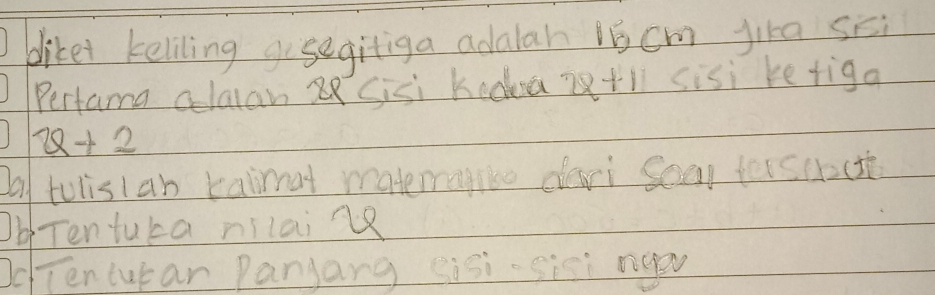 diket keliling segitiga adalah 15 cm jika sisi
Pertama adalah x sisi kedua x+1 sisi ketiga
x+2
a tulislah kalimat matematika dari soal tersebut
b Tentuka nilai x
c Tentukan Panjang sisi-sisi nya